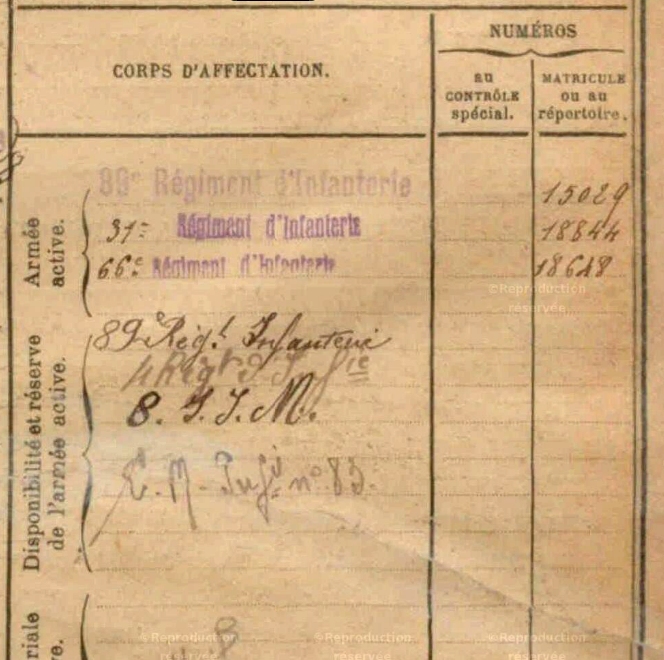 NUMÉROS
CORPS D'AFFECTATION.
au
CONTRÔLE
spécial.
MATRICULE
ou au
répertoire.
Armée
active.
89e Régiment d'Infanterie
15029
31e Régiment d'Infanterie
18844
66e Régiment d'Infanterie
18648
©Reproduction
réservée
Disponibilité et réserve
de l'armée active.
89e Régt Infanterie
4 Régt
8. S. I. M.
n° 83.
riale
ve.
8
©Reproduction
réservée
©Reproduction
réservée
©Reproduction
réservée